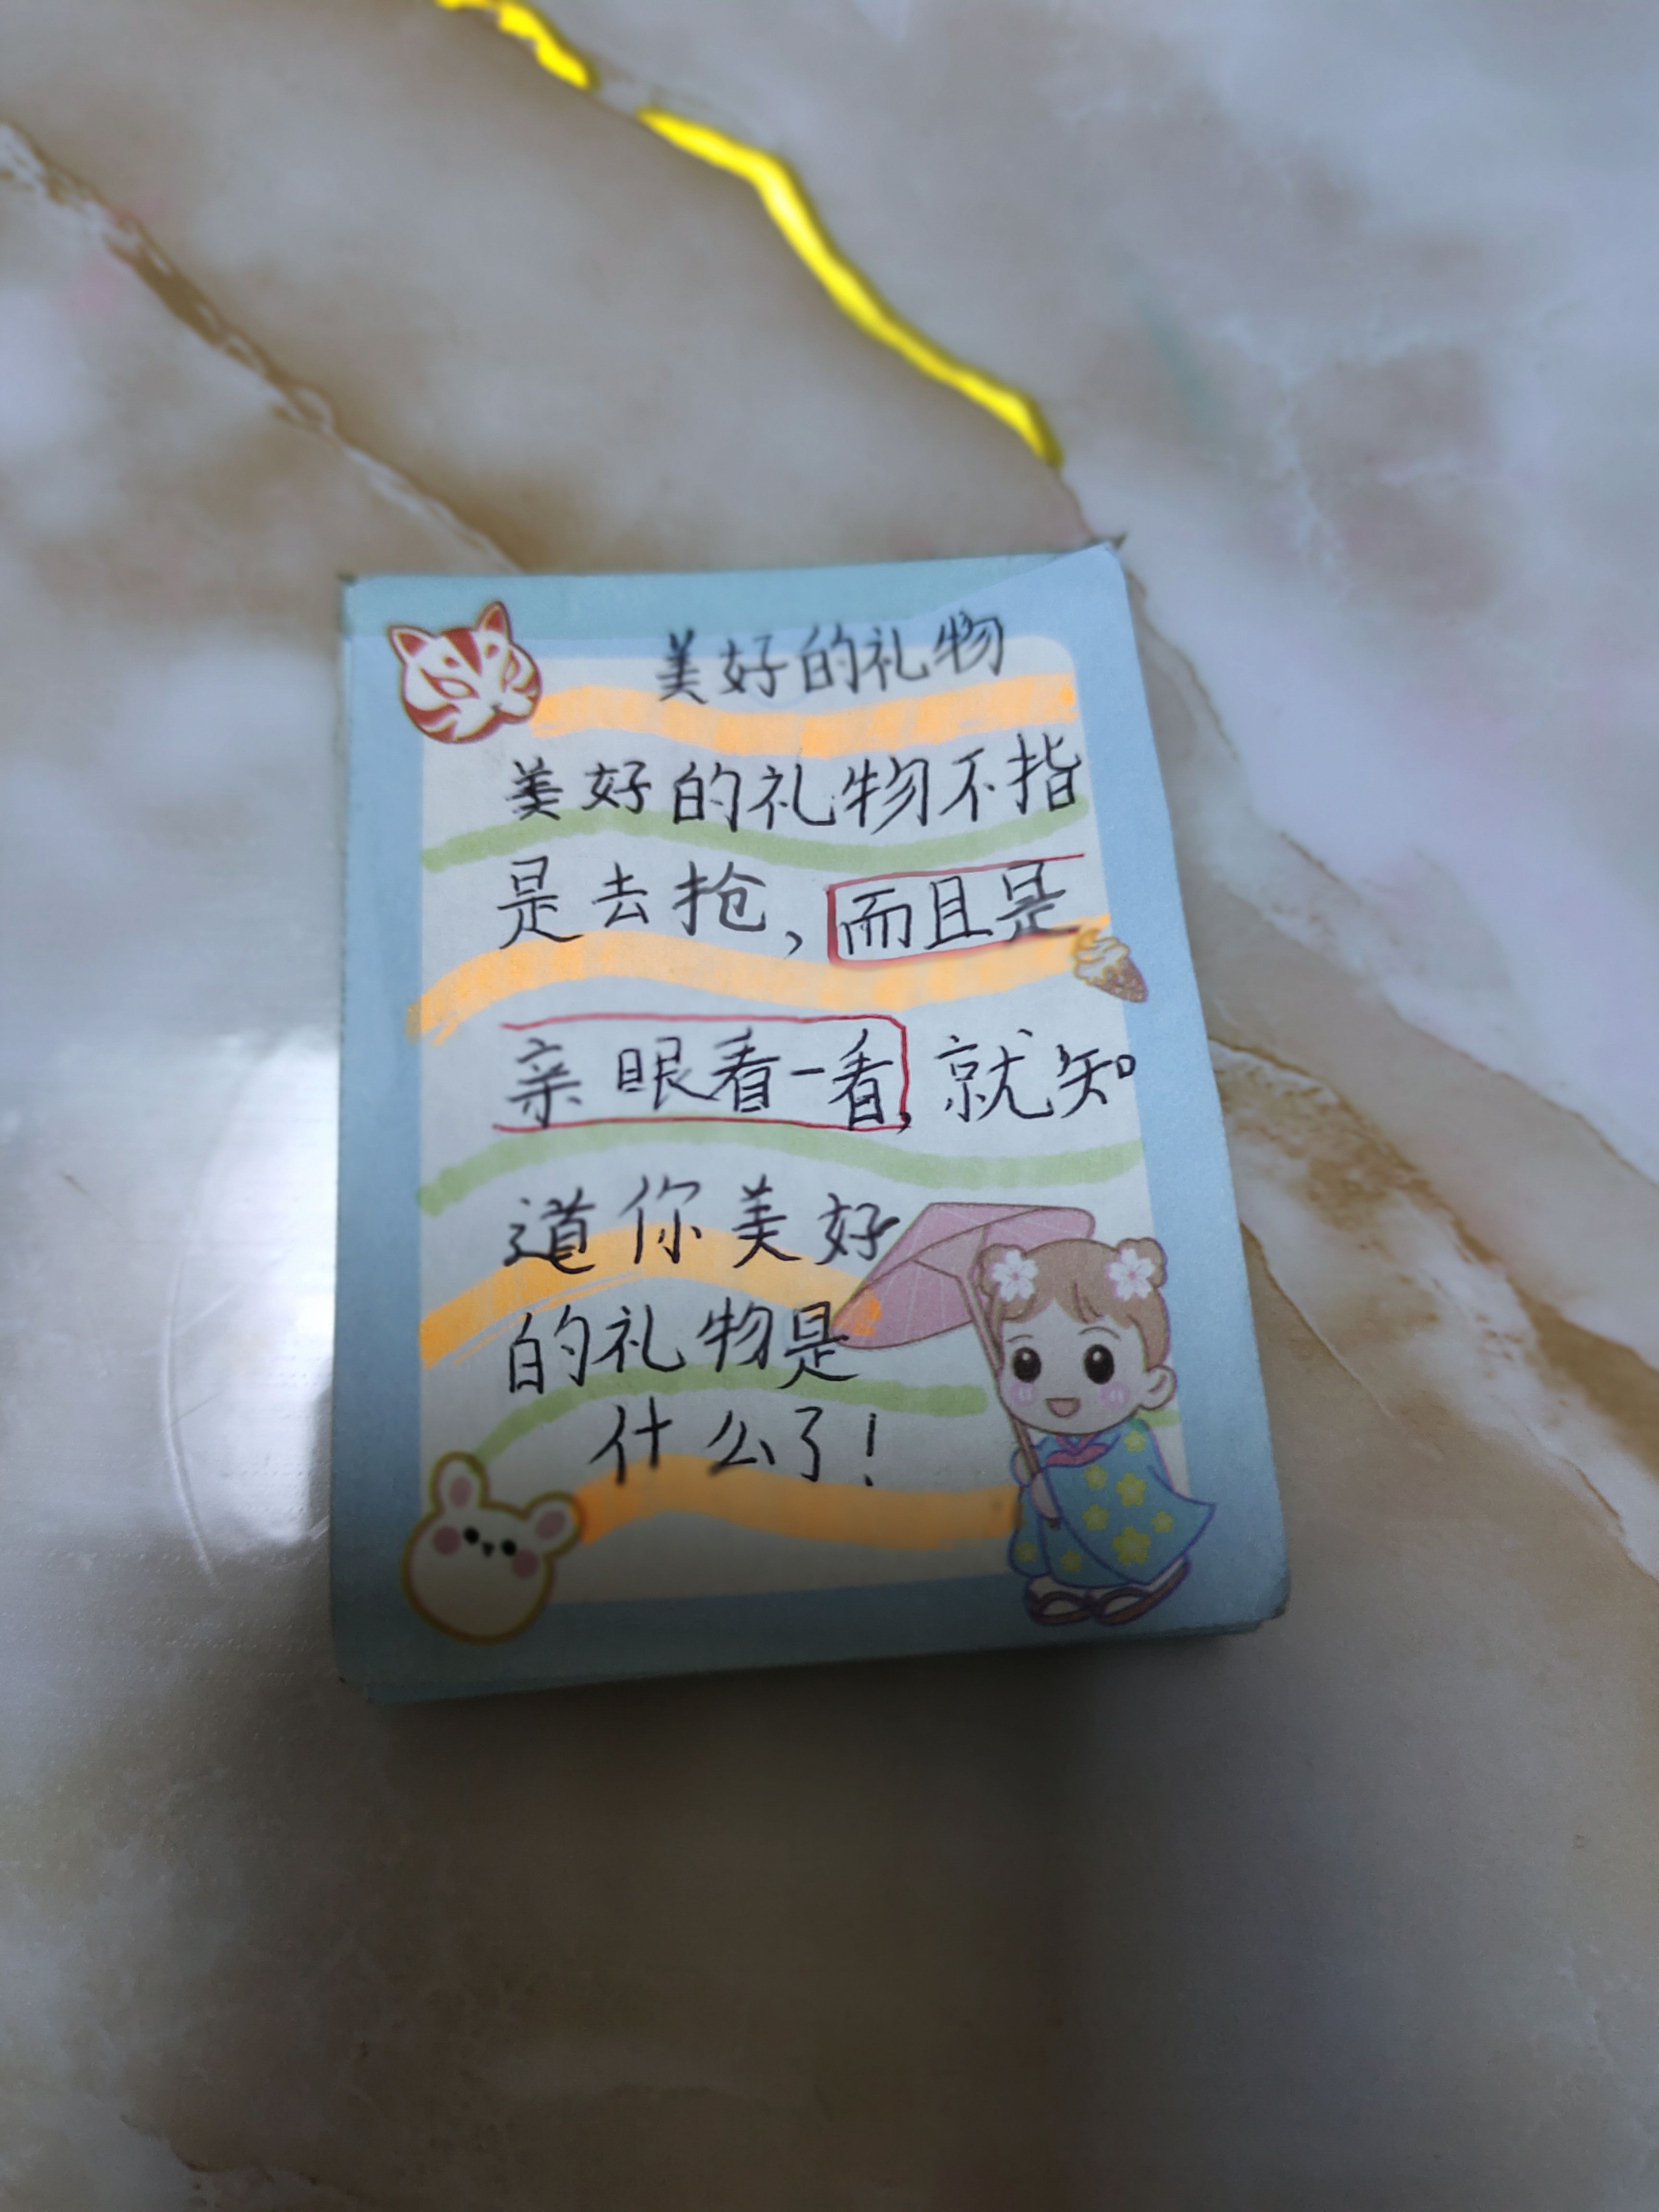 美好的礼物
美好的礼物不指
是去抢，而且是
亲眼看一看，就知
道你美好
的礼物是
什么了！